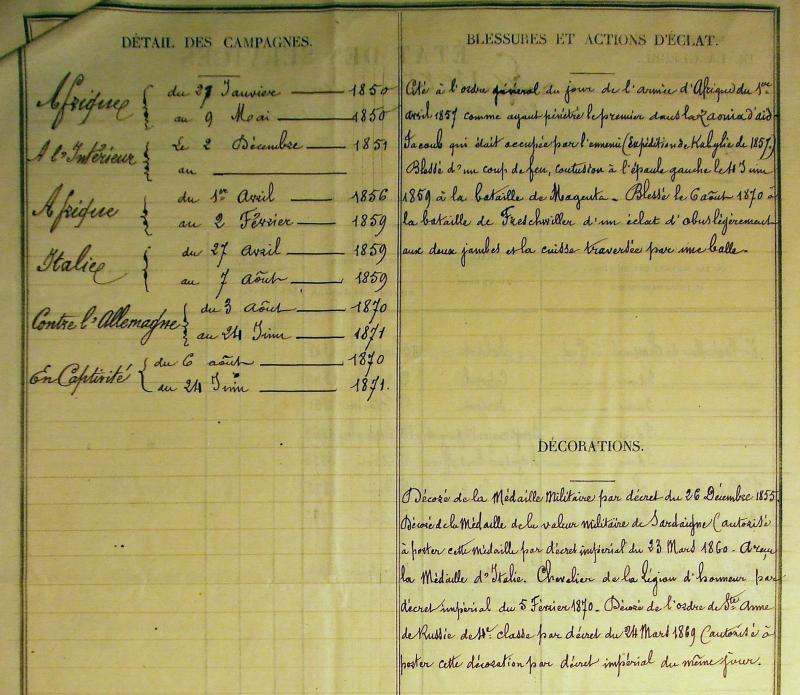 DÉTAIL DES CAMPAGNES.
Afrique { du 27 Janvier — 1850
au 9 Mai — 1850
A l'Intérieur { Le 2 Décembre — 1851
au —
Afrique { du 1er Avril — 1856
au 2 Février — 1859
Italie { du 27 Avril — 1859
au 7 Août — 1859
Contre l'Allemagne { du 3 Août — 1870
au 24 Juin — 1871
En Captivité { du 6 août — 1870
au 24 Juin — 1871.
BLESSURES ET ACTIONS D'ÉCLAT.
Cité à l'ordre général du jour de l'armée d'Afrique du 1er
avril 1857 comme ayant pénétré le premier dans la zaouia d'aïd
Iacoub qui était occupée par l'ennemi (Expédition de Kabylie de 1857.)
Blessé d'un coup de feu, contusion à l'épaule gauche le 4 Juin
1859 à la bataille de Magenta - Blessé le 6 août 1870 à
la bataille de Freschwiller d'un éclat d'obus légèrement
aux deux jambes et la cuisse traversée par une balle.
DÉCORATIONS.
Décoré de la Médaille Militaire par décret du 26 Décembre 1855.
Décoré de la Médaille de la valeur militaire de Sardaigne (autorisé
à porter cette médaille par décret impérial du 23 Mars 1860 - A reçu
la Médaille d'Italie. Chevalier de la Légion d'honneur par
décret impérial du 5 Février 1870 - Décoré de l'ordre de Ste Anne
de Russie de 4e classe par décret du 24 Mars 1869 (autorisé à
porter cette décoration par décret impérial du même jour.